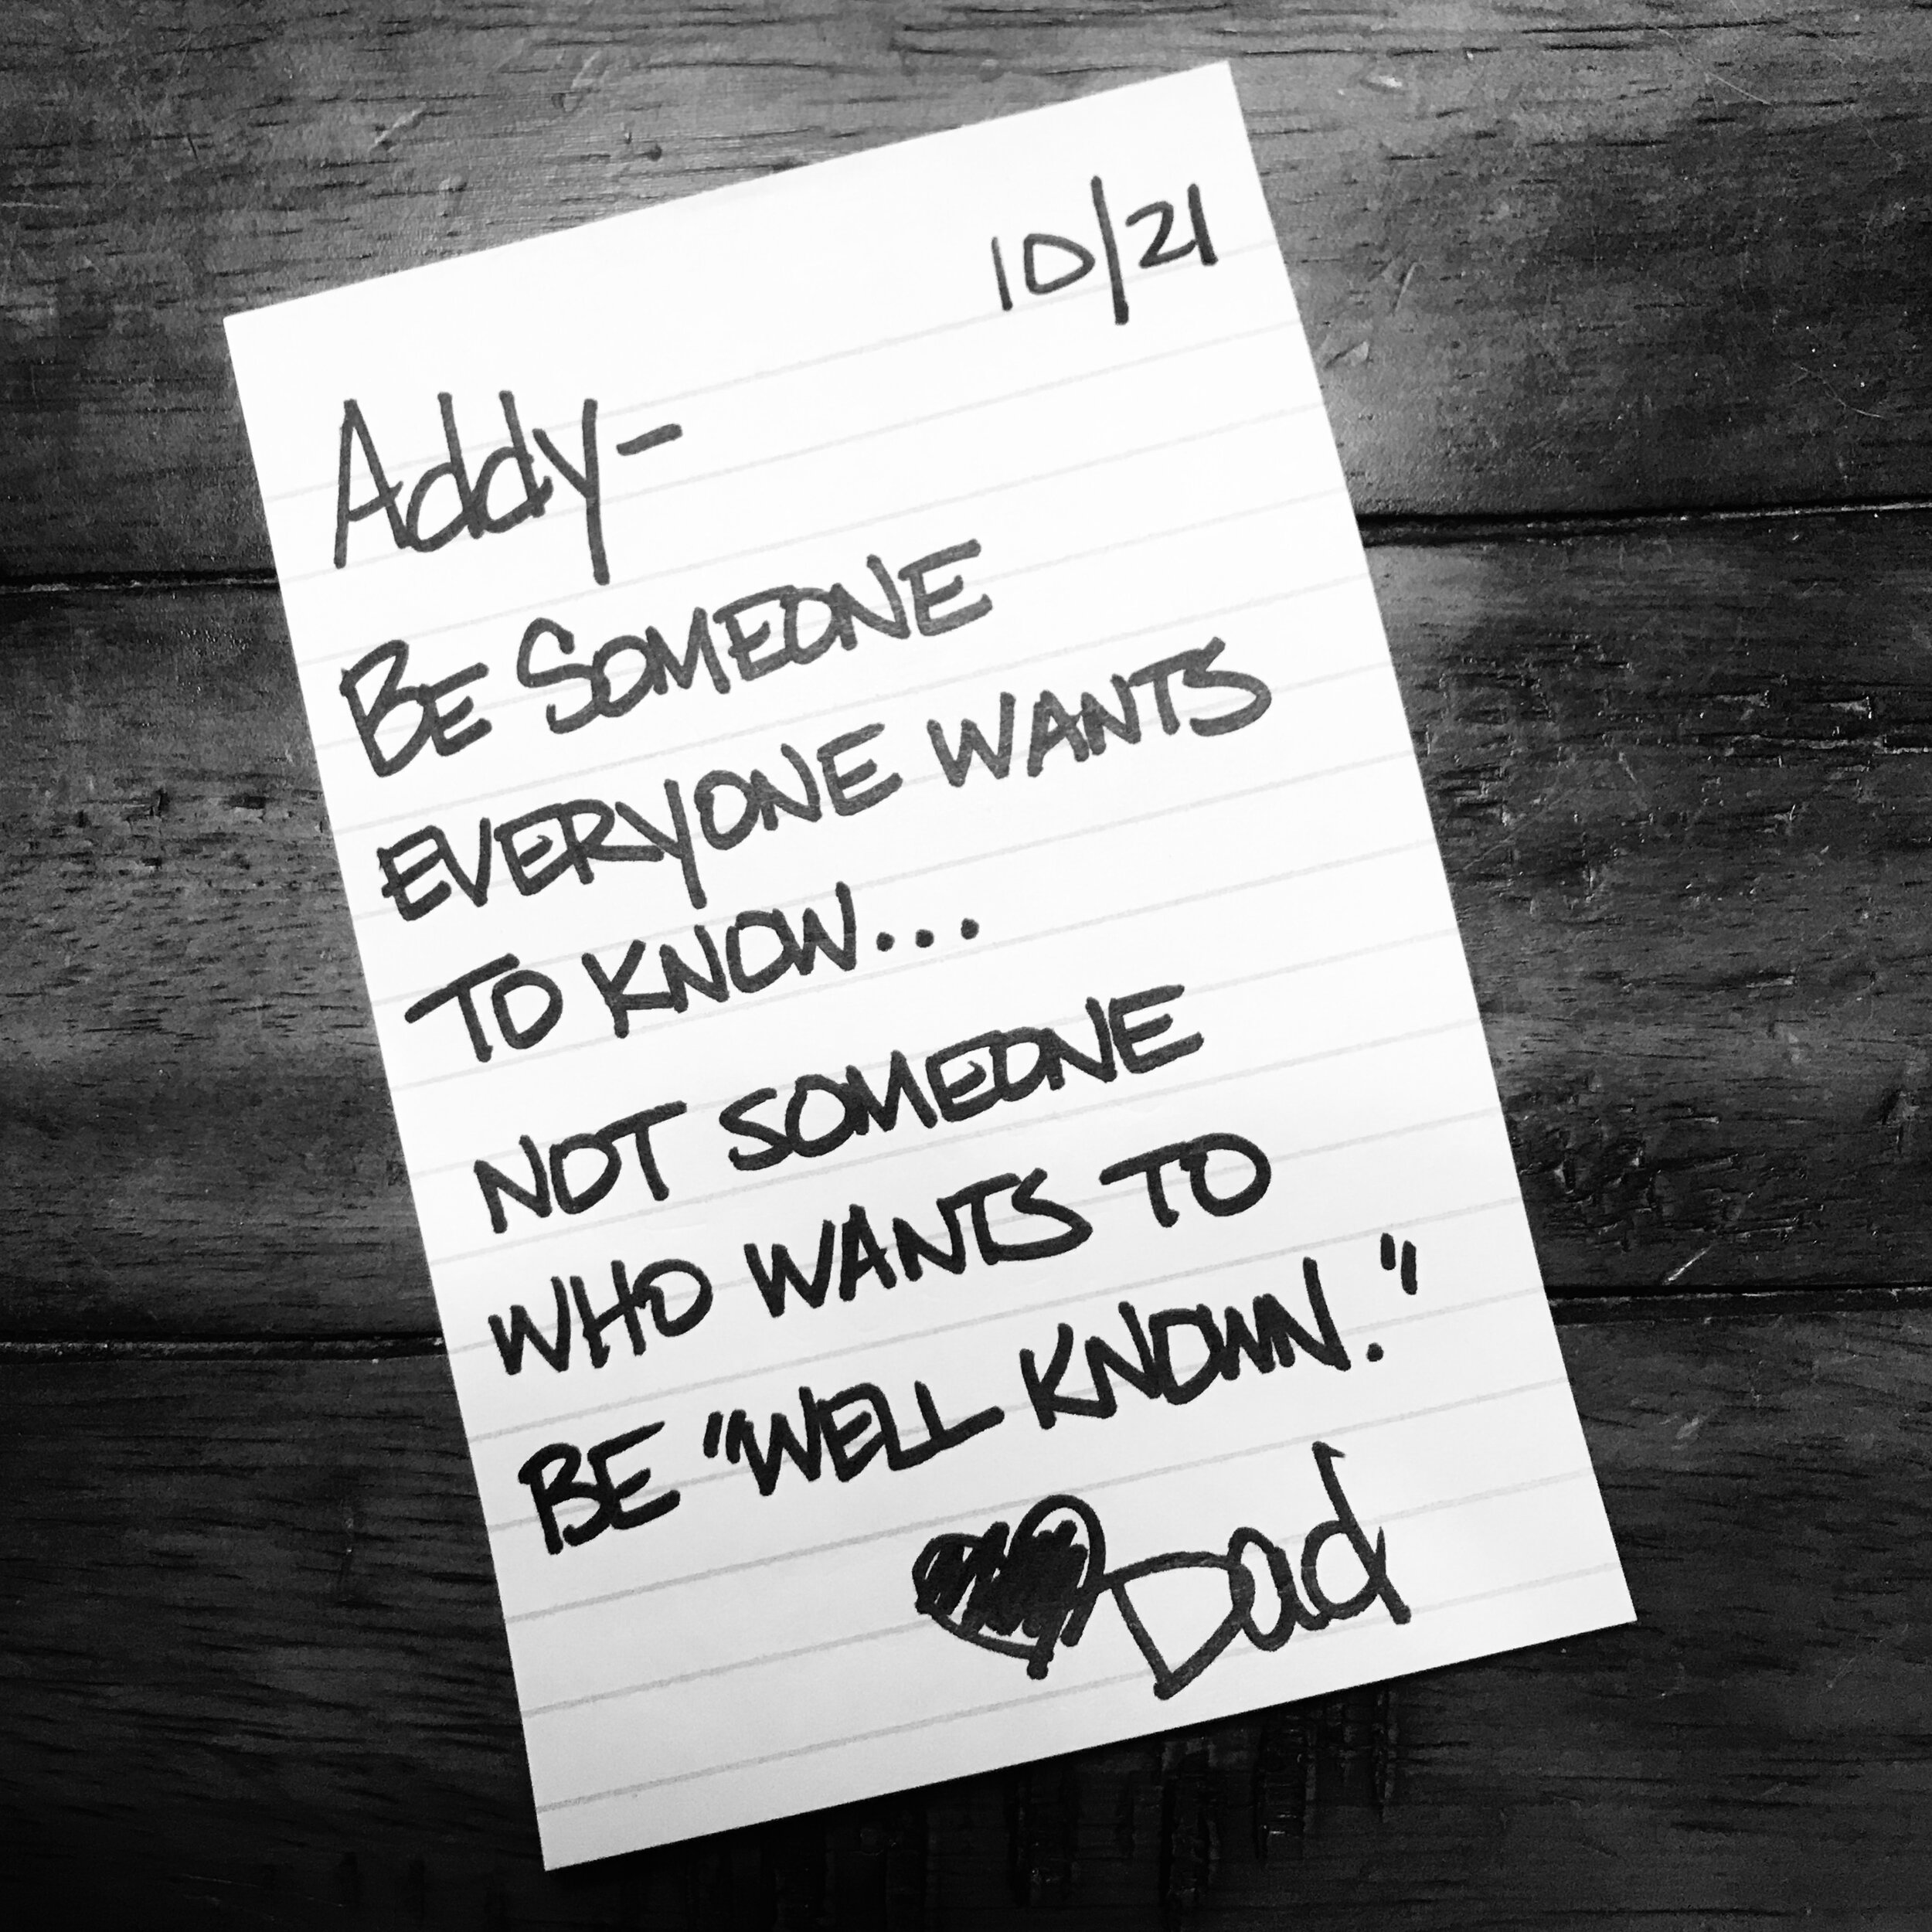 10/21
Addy-
BE SOMEONE
EVERYONE WANTS
TO KNOW...
NOT SOMEONE
WHO WANTS TO
BE "WELL KNOWN."
Dad